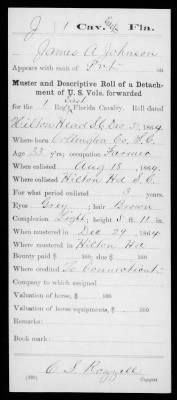 J 1 Cav. East Fla.
James A Johnson
Appears with rank of Pvt
Muster and Descriptive Roll of a Detach-
ment of U. S. Vols. forwarded
for the 1 Reg't East Florida Cavalry. Roll dated
Hilton Head S.C. Dec 31, 1864.
Where born Colleton Co, S.C.
Age 23 y'rs; occupation Farmer
When enlisted Aug 18, 1864.
Where enlisted Hilton Hd S.C.
For what period enlisted 3 years.
Eyes Grey; hair Brown
Complexion Light; height 5 ft. 11 in.
When mustered in Dec 29, 1864
Where mustered in Hilton Hd
Bounty paid $ 100; due $ 100
Where credited To Connecticut
Company to which assigned
Valuation of horse, $ 100
Valuation of horse equipments, $ 100
Remarks:
Book mark:
C. S.
Copyist